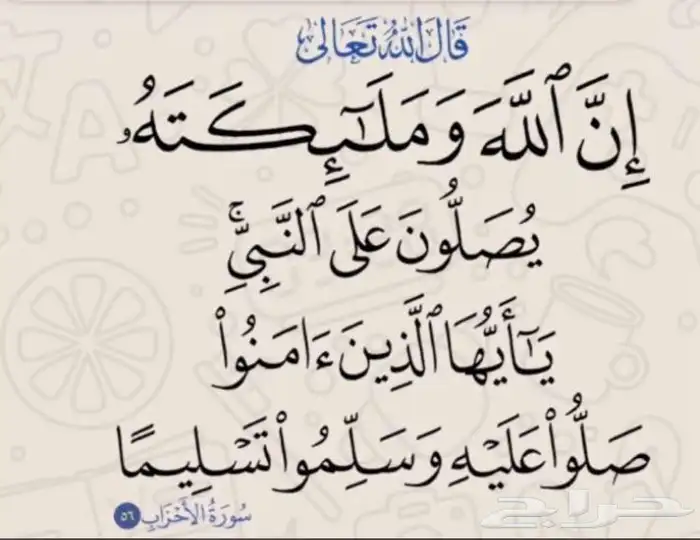 قَالَ اللَّهُ تَعَالَى
إِنَّ ٱللَّهَ وَمَلَـٰٓئِكَتَهُۥ
يُصَلُّونَ عَلَى ٱلنَّبِىِّۚ
يَـٰٓأَيُّهَا ٱلَّذِينَ ءَامَنُوا۟
صَلُّوا۟ عَلَيْهِ وَسَلِّمُوا۟ تَسْلِيمًا
سُورَةُ الأَحْزَابِ ٥٦
حراج